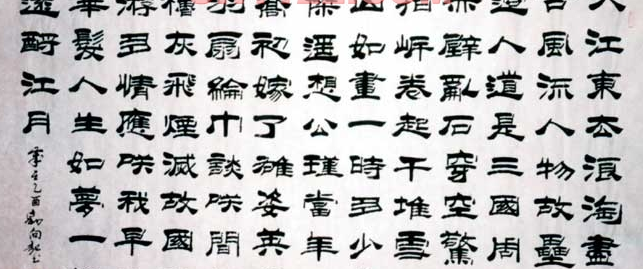 大江東去浪淘盡
古風流人物故壘
邊人道是三國周
赤壁亂石穿空驚
拍岸卷起千堆雪
山如畫一時多少
傑遥想公瑾當年
喬初嫁了雄姿英
羽扇綸巾談咲間
櫓灰飛煙滅故國
游多情應咲我早
華髮人生如夢一
還酹江月
乙酉